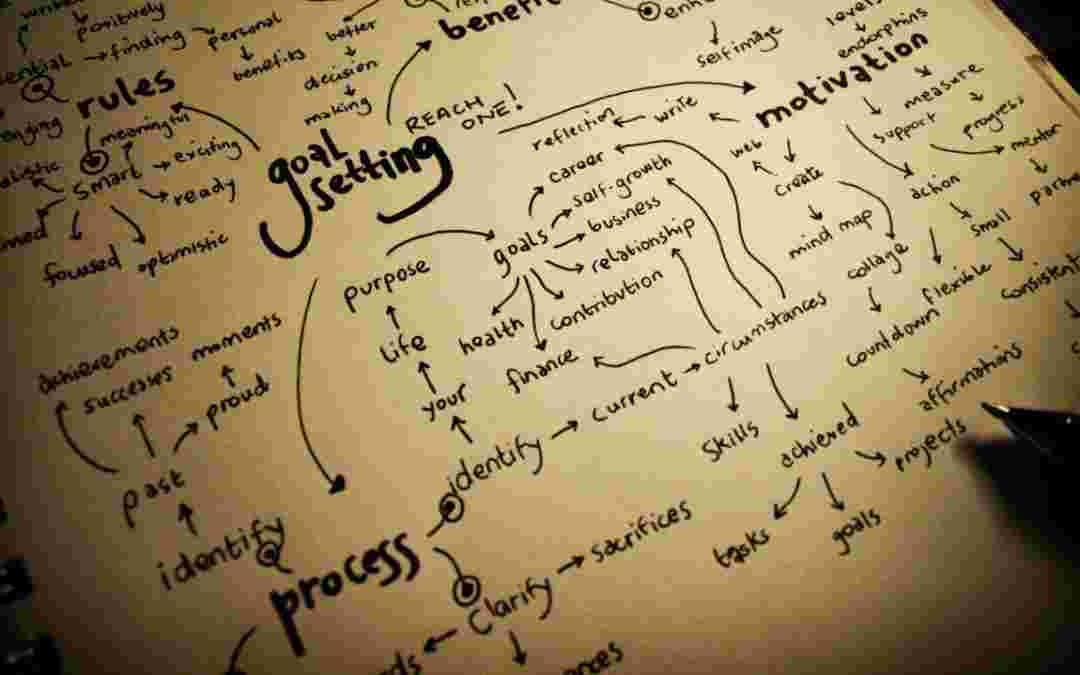 positively
finding
personal
benefits
better
decision
making
self image
endorphins
rules
meaningful
smart
exciting
ready
focused
optimistic
goal
setting
REACH
ONE!
motivation
measure
progress
support
mentor
action
small
flexible
web
create
mind map
collage
countdown
affirmations
reflection
write
career
self-growth
business
relationship
contribution
goals
health
finance
purpose
life
your
identify
current
circumstances
skills
achieved
projects
tasks
goals
achievements
successes
moments
proud
past
identify
process
clarify
sacrifices